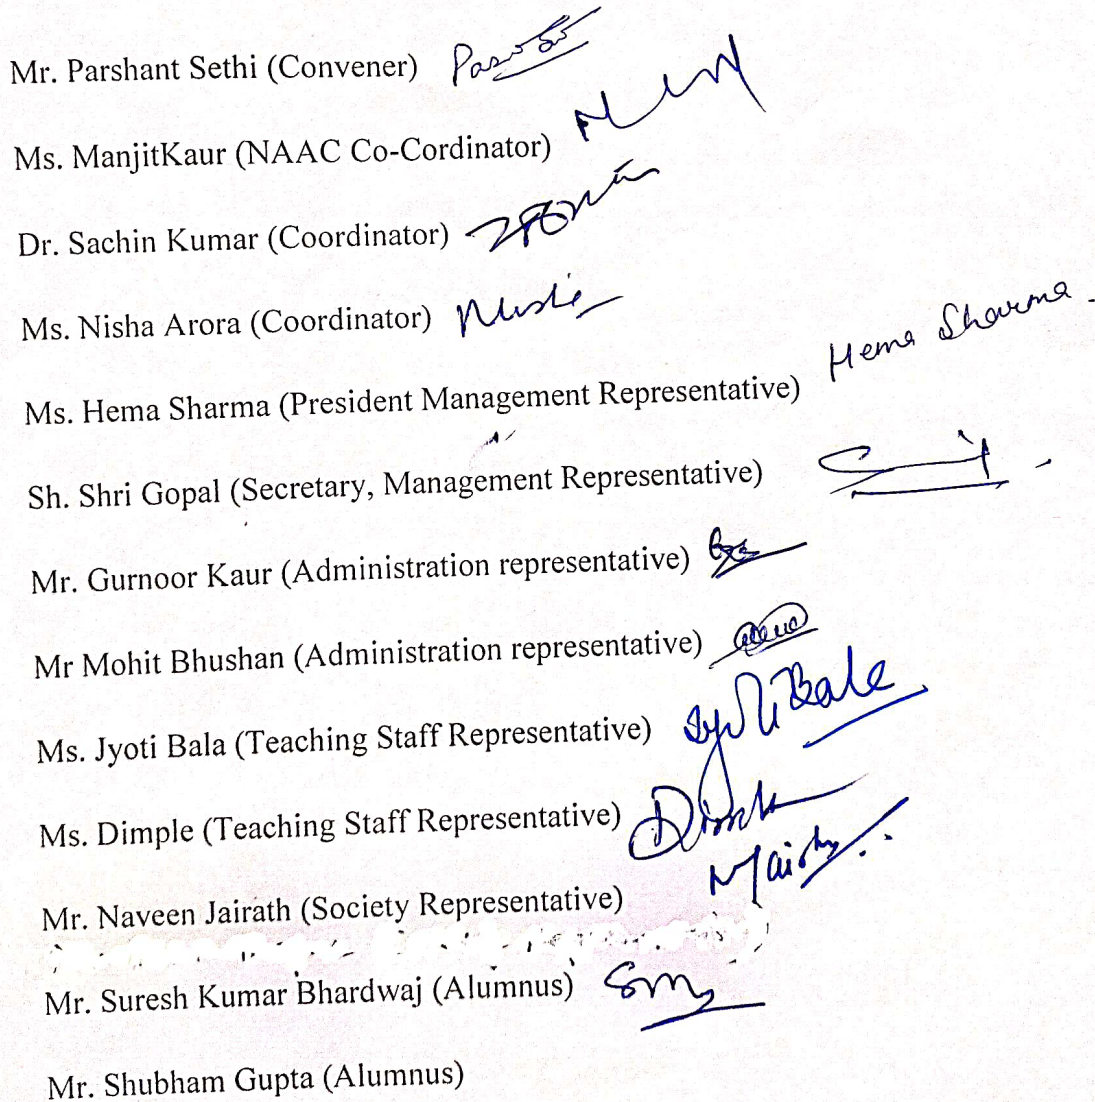 Mr. Parshant Sethi (Convener)
Ms. ManjitKaur (NAAC Co-Cordinator)
Dr. Sachin Kumar (Coordinator)
Ms. Nisha Arora (Coordinator)
Ms. Hema Sharma (President Management Representative) Hema Sharma
Sh. Shri Gopal (Secretary, Management Representative)
Mr. Gurnoor Kaur (Administration representative)
Mr Mohit Bhushan (Administration representative)
Ms. Jyoti Bala (Teaching Staff Representative) Jyoti Bala
Ms. Dimple (Teaching Staff Representative)
Mr. Naveen Jairath (Society Representative)
Mr. Suresh Kumar Bhardwaj (Alumnus)
Mr. Shubham Gupta (Alumnus)